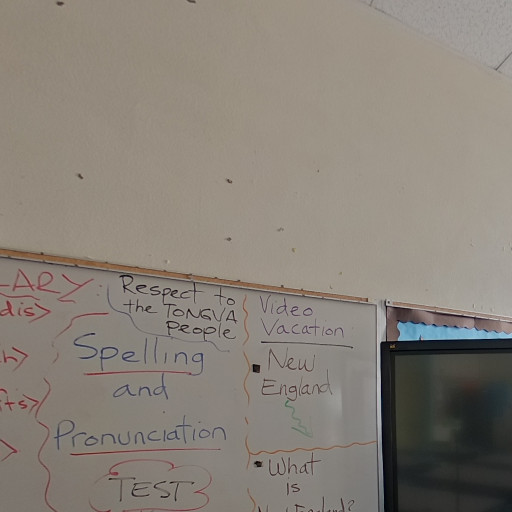 LARY
dis>
Respect to
the TONGVA
people
Spelling
and
Pronunciation
TEST
Video
Vacation
New
England
What
is